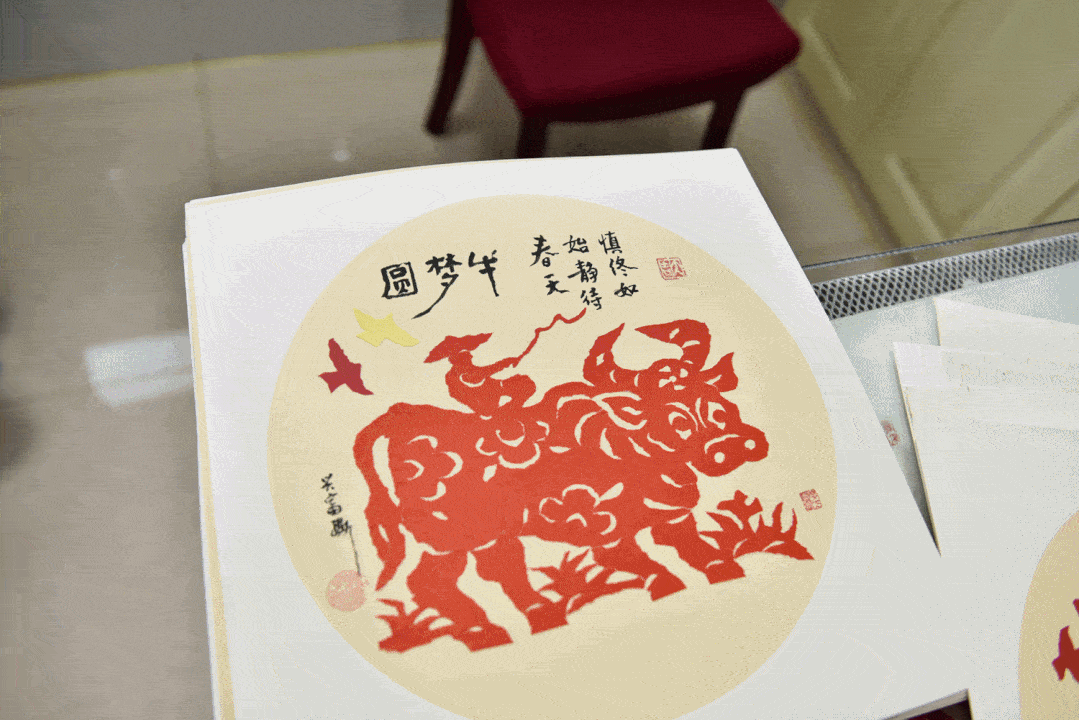 慎终如
始静待
春天
牛梦圆